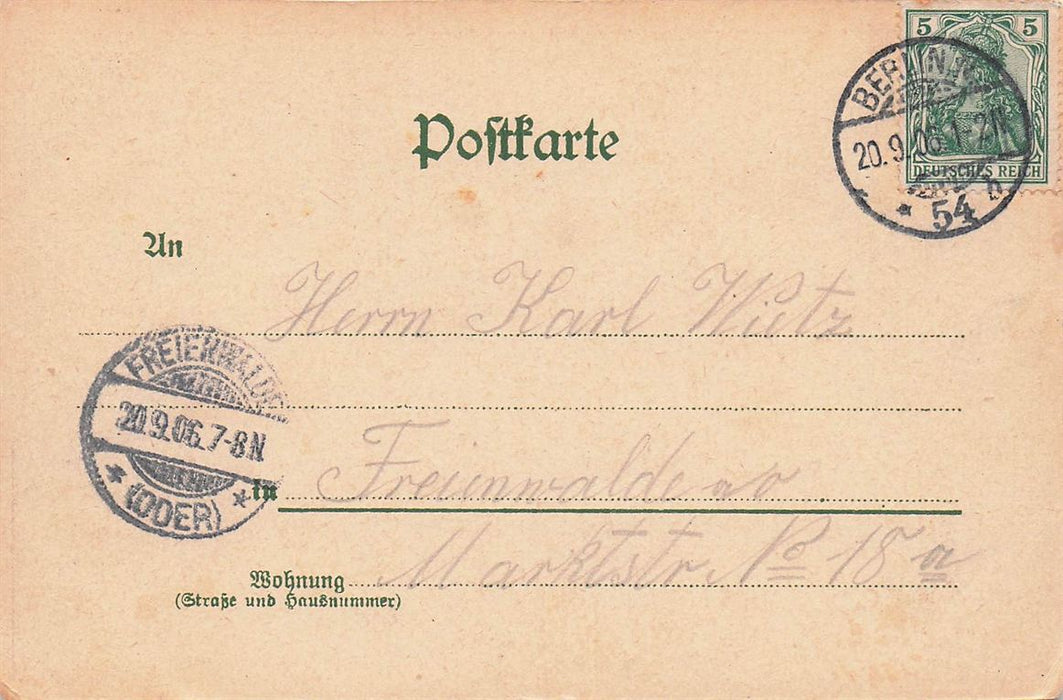 5 5
DEUTSCHES REICH
BERLIN N.
20.9.06.1-2N
* 54 h
Postkarte
An
Herrn Karl Wietz
FREIENWALDE
20.9.06.7-8N
* (ODER) *
in Freienwalde a O
Marktstr. No 18 a
Wohnung
(Straße und Hausnummer)